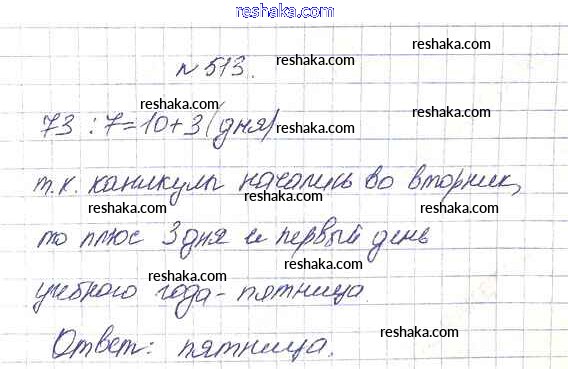 reshaka.com
№ 513.
reshaka.com
reshaka.com
reshaka.com
73 : 7 = 10 + 3 (дня)
reshaka.com
т.к. каникулы начались во вторник,
reshaka.com
reshaka.com
то плюс 3 дня и первый день
reshaka.com
reshaka.com
учебного года - пятница.
reshaka.com
reshaka.com
Ответ: пятница.
reshaka.com